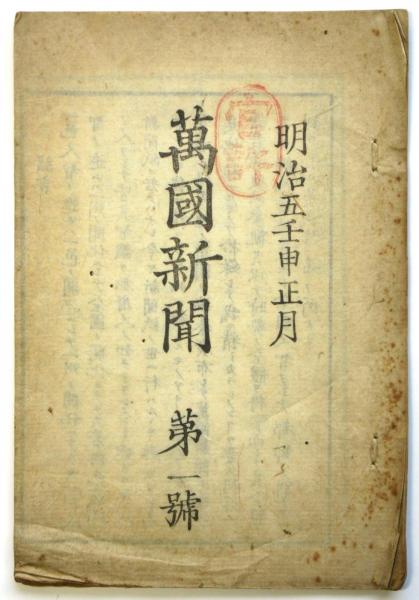 明治五壬申正月
官許
萬國新聞 第一號